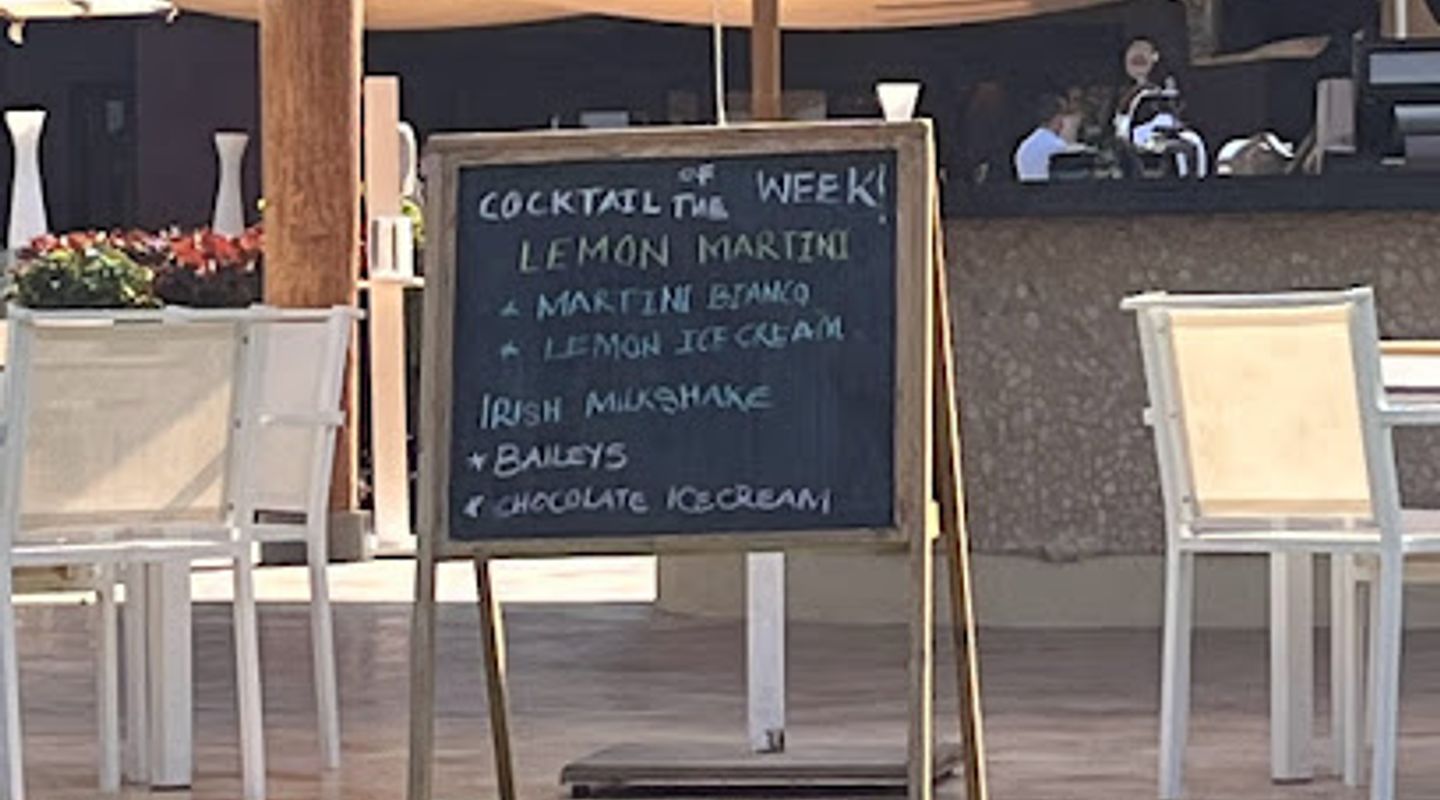 COCKTAIL OF THE WEEK!
LEMON MARTINI
* MARTINI BIANCO
* LEMON ICE CREAM
IRISH MILKSHAKE
* BAILEYS
* CHOCOLATE ICECREAM